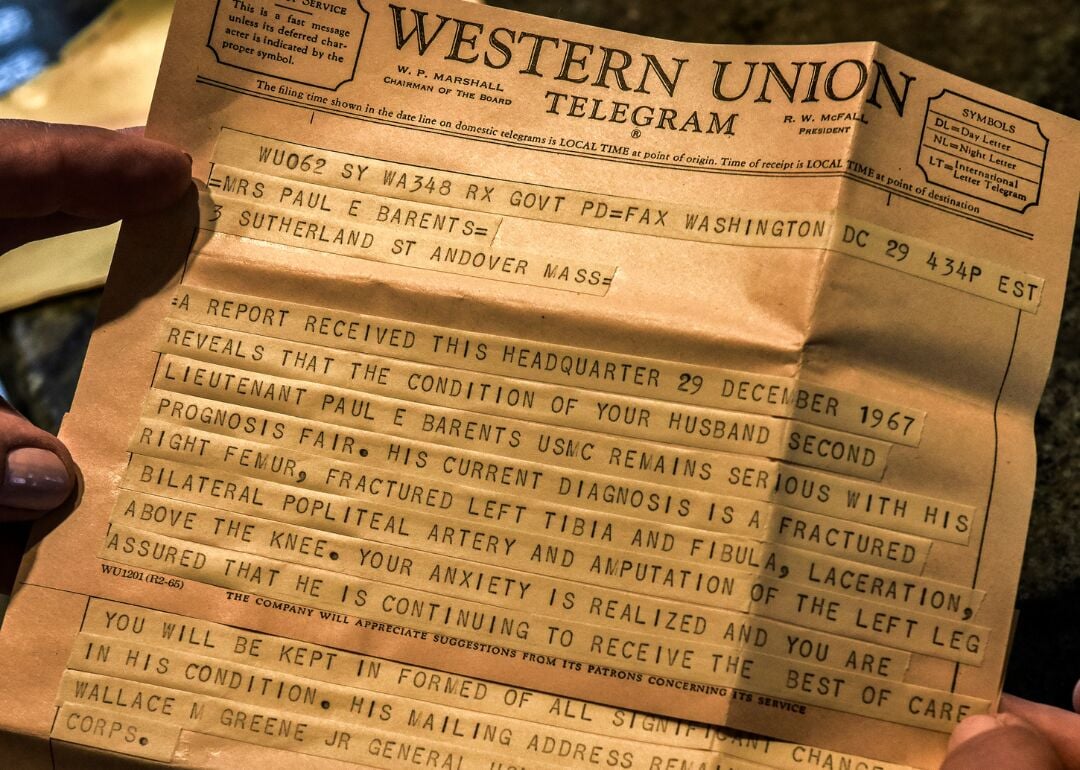 SERVICE
This is a fast message
unless its deferred char-
acter is indicated by the
proper symbol.
WESTERN UNION
TELEGRAM
®
W. P. MARSHALL
CHAIRMAN OF THE BOARD
R. W. McFALL
PRESIDENT
SYMBOLS
DL=Day Letter
NL=Night Letter
LT=International
Letter Telegram
The filing time shown in the date line on domestic telegrams is LOCAL TIME at point of origin. Time of receipt is LOCAL TIME at point of destination
WU062 SY WA348 RX GOVT PD=FAX WASHINGTON DC 29 434P EST
=MRS PAUL E BARENTS=
3 SUTHERLAND ST ANDOVER MASS=
=A REPORT RECEIVED THIS HEADQUARTER 29 DECEMBER 1967
REVEALS THAT THE CONDITION OF YOUR HUSBAND SECOND
LIEUTENANT PAUL E BARENTS USMC REMAINS SERIOUS WITH HIS
PROGNOSIS FAIR. HIS CURRENT DIAGNOSIS IS A FRACTURED
RIGHT FEMUR, FRACTURED LEFT TIBIA AND FIBULA, LACERATION,
BILATERAL POPLITEAL ARTERY AND AMPUTATION OF THE LEFT LEG
ABOVE THE KNEE. YOUR ANXIETY IS REALIZED AND YOU ARE
ASSURED THAT HE IS CONTINUING TO RECEIVE THE BEST OF CARE
WU1201 (R2-65)
THE COMPANY WILL APPRECIATE SUGGESTIONS FROM ITS PATRONS CONCERNING ITS SERVICE
YOU WILL BE KEPT IN FORMED OF ALL SIGNIFICANT CHANGE
IN HIS CONDITION. HIS MAILING ADDRESS
WALLACE M GREENE JR GENERAL
CORPS.